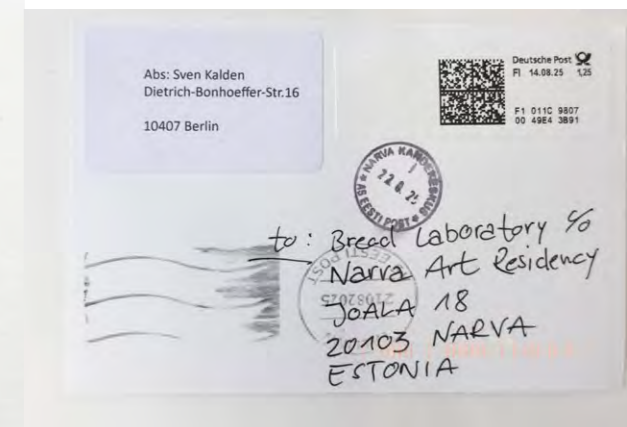 Abs: Sven Kalden
Dietrich-Bonhoeffer-Str.16
10407 Berlin
Deutsche Post
FI 14.08.25 1,25
F1 011C 9807
00 49E4 3B91
NARVA KANDEKESKUS
22.8.25
AS EESTI POST
to: Bread Laboratory c/o
Narva Art Residency
JOALA 18
20103 NARVA
ESTONIA
EESTI POST
21082025